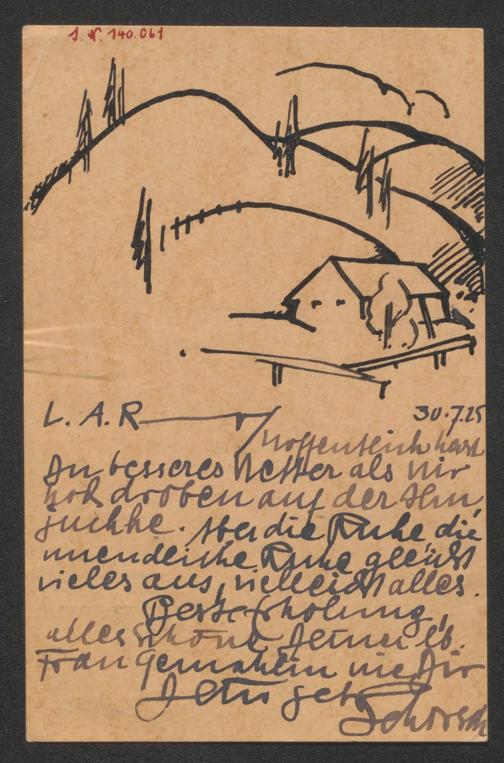 J. N. 140.061
L. A. R
30.7.25
hoffentlich hast
Du besseres Wetter als wir
hoch droben auf der Alm
juchhe. Aber die Ruhe die
unendliche Ruhe gleicht
vieles aus, vielleicht alles.
Beste Erholung,
alles Schöne Deiner lb.
Frau Gemahlin wie Dir
Dein
Schorsch